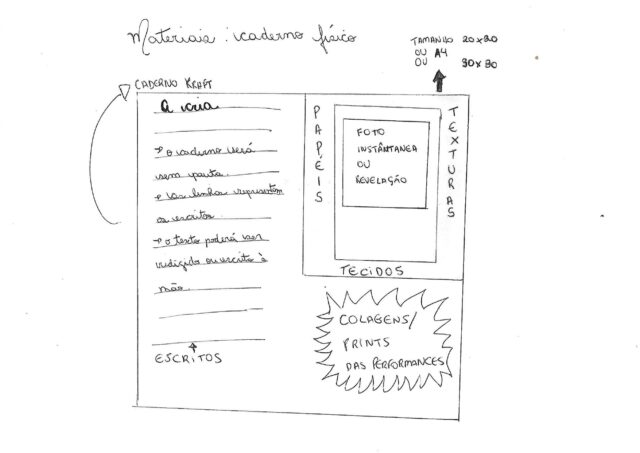 Materiais: caderno físico
TAMANHO 20x20
OU A4
OU 30x30
CADERNO KRAFT
A cria
→ o caderno será
sem pauta.
e as linhas representam
os escritos.
→ o texto poderá ser
redigido ou escrito à
mão.
ESCRITOS
PAPÉIS
FOTO
INSTÂNTANEA
OU
REVELAÇÃO
TEXTURAS
TECIDOS
COLAGENS/
PRINTS
DAS PERFORMANCES/